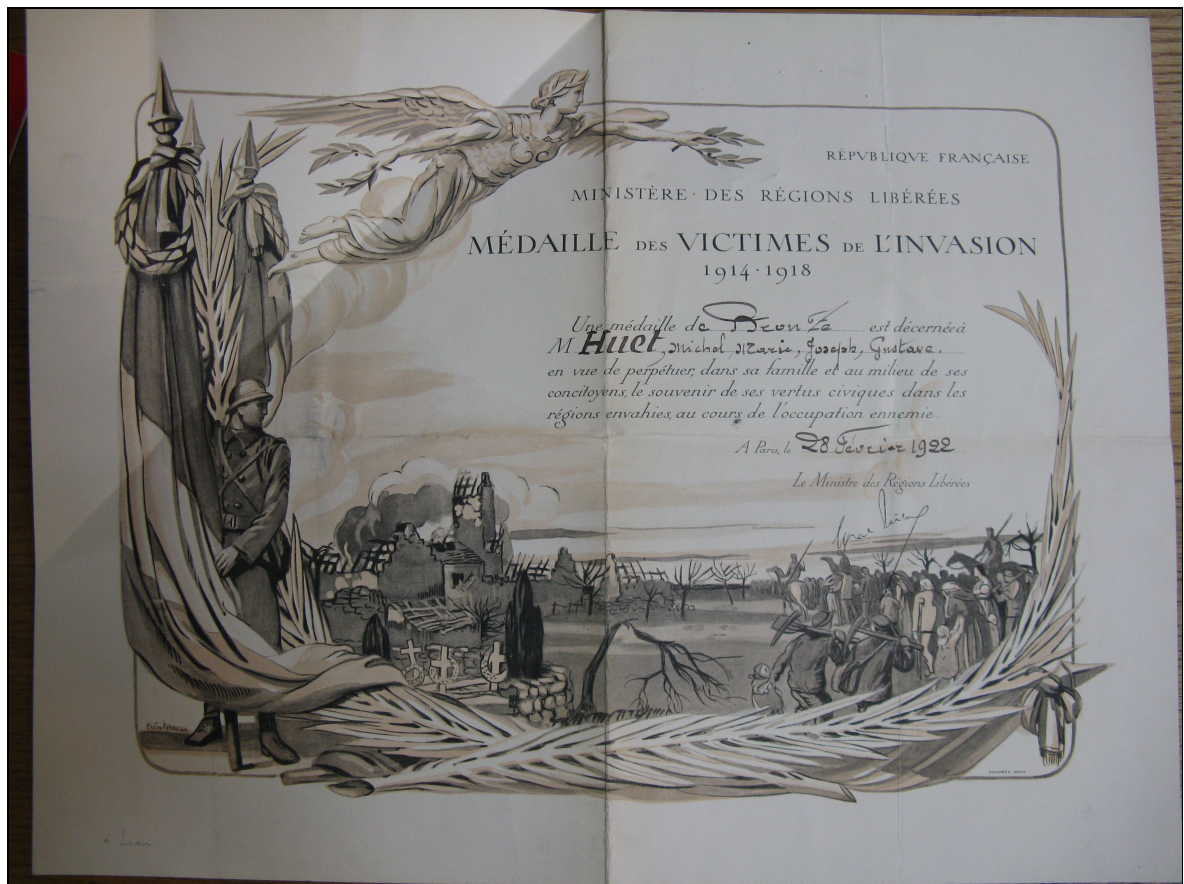 RÉPVBLIQVE FRANÇAISE
MINISTÈRE · DES RÉGIONS LIBÉRÉES
MÉDAILLE DES VICTIMES DE L'INVASION
1914 · 1918
Une médaille de Bronze est décernée à
M Huet, Michel, Marie, Joseph, Gustave.
en vue de perpétuer, dans sa famille et au milieu de ses
concitoyens, le souvenir de ses vertus civiques dans les
régions envahies, au cours de l'occupation ennemie.
A Paris, le 28 Février 1922
Le Ministre des Régions Libérées